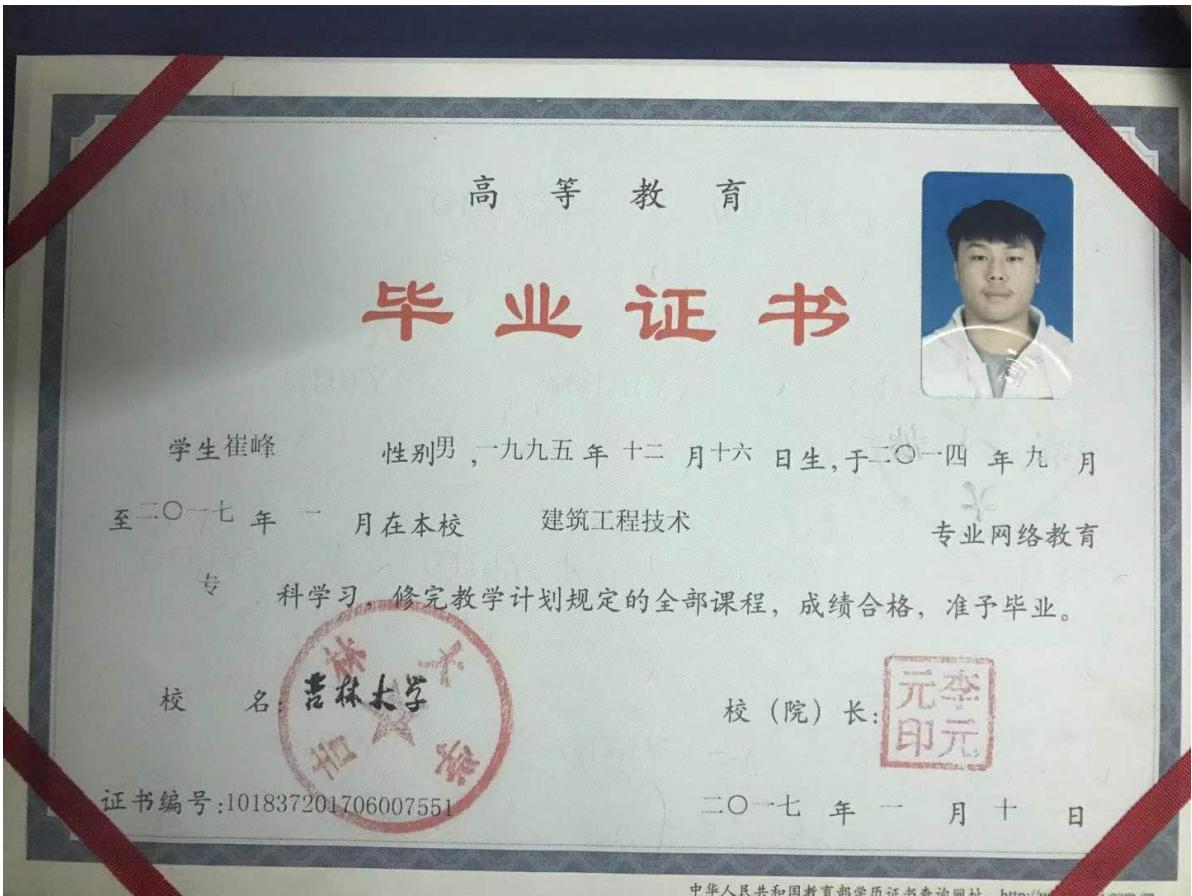 高等教育
毕业证书
学生崔峰 性别男,一九九五年十二月十六日生,于二〇一四年九月
至二〇一七年一月在本校 建筑工程技术 专业网络教育
专科学习,修完教学计划规定的全部课程,成绩合格,准予毕业。
校名:吉林大学 校(院)长:李元元印
吉林大学
证书编号:101837201706007551 二〇一七年一月十日
中华人民共和国教育部学历证书查询网址